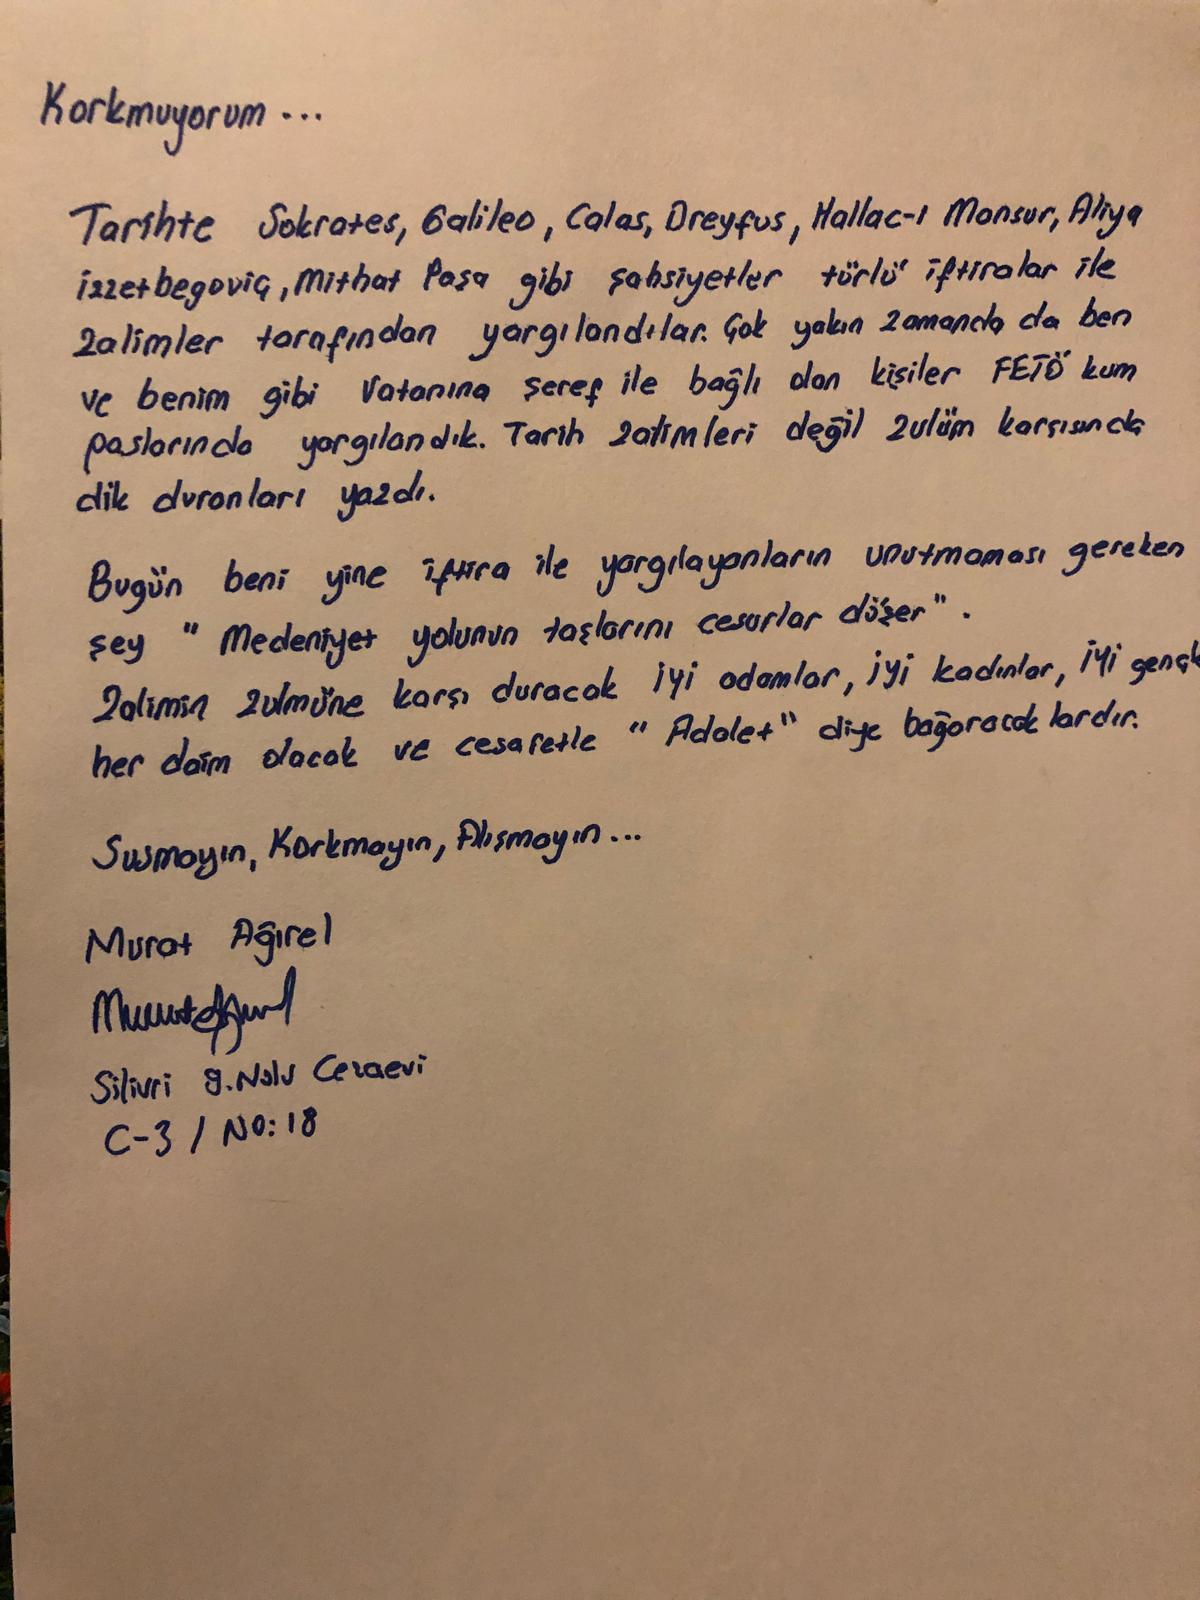 Korkmuyorum ...
Tarihte Sokrates, Galileo, Calas, Dreyfus, Hallac-ı Mansur, Aliya
izzetbegoviç, Mithat Paşa gibi şahsiyetler türlü iftiralar ile
zalimler tarafından yargılandılar. Çok yakın zamanda da ben
ve benim gibi Vatanına şeref ile bağlı olan kişiler FETÖ kum
paslarında yargılandık. Tarih zalimleri değil zulüm karşısında
dik duranları yazdı.
Bugün beni yine iftira ile yargılayanların unutmaması gereken
şey " Medeniyet yolunun taşlarını cesurlar döşer" .
Zalimin zulmüne karşı duracak iyi adamlar, iyi kadınlar, iyi gençle
her daim olacak ve cesaretle " Adalet" diye bağıracaklardır.
Susmayın, Korkmayın, Alışmayın...
Murat Ağırel
Silivri 9.Nolu Cezaevi
C-3 / NO: 18